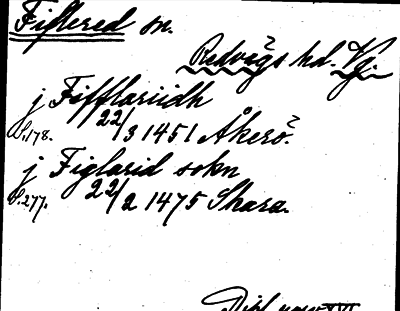 Fiflered sn.
Redvägs hd. Vg.
j Fifflariidh
S. 178. 22/3 1451 Åkerö.
j Figlarid sokn
S. 277. 22/2 1475 Skara.
Dipl.